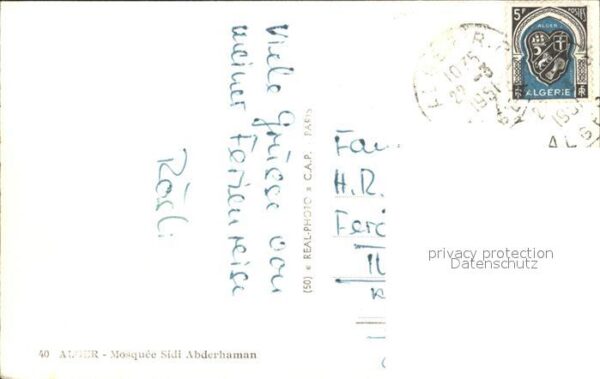 Viele Grüsse von
meiner Ferienreise
Rösli
(50) « REAL-PHOTO » C.A.P. PARIS
Fam
H.R.
Feri
5F
POSTES
ALGER
ALGERIE
RF
1951
ALG
privacy protection
Datenschutz
40 ALGER - Mosquée Sidi Abderhaman